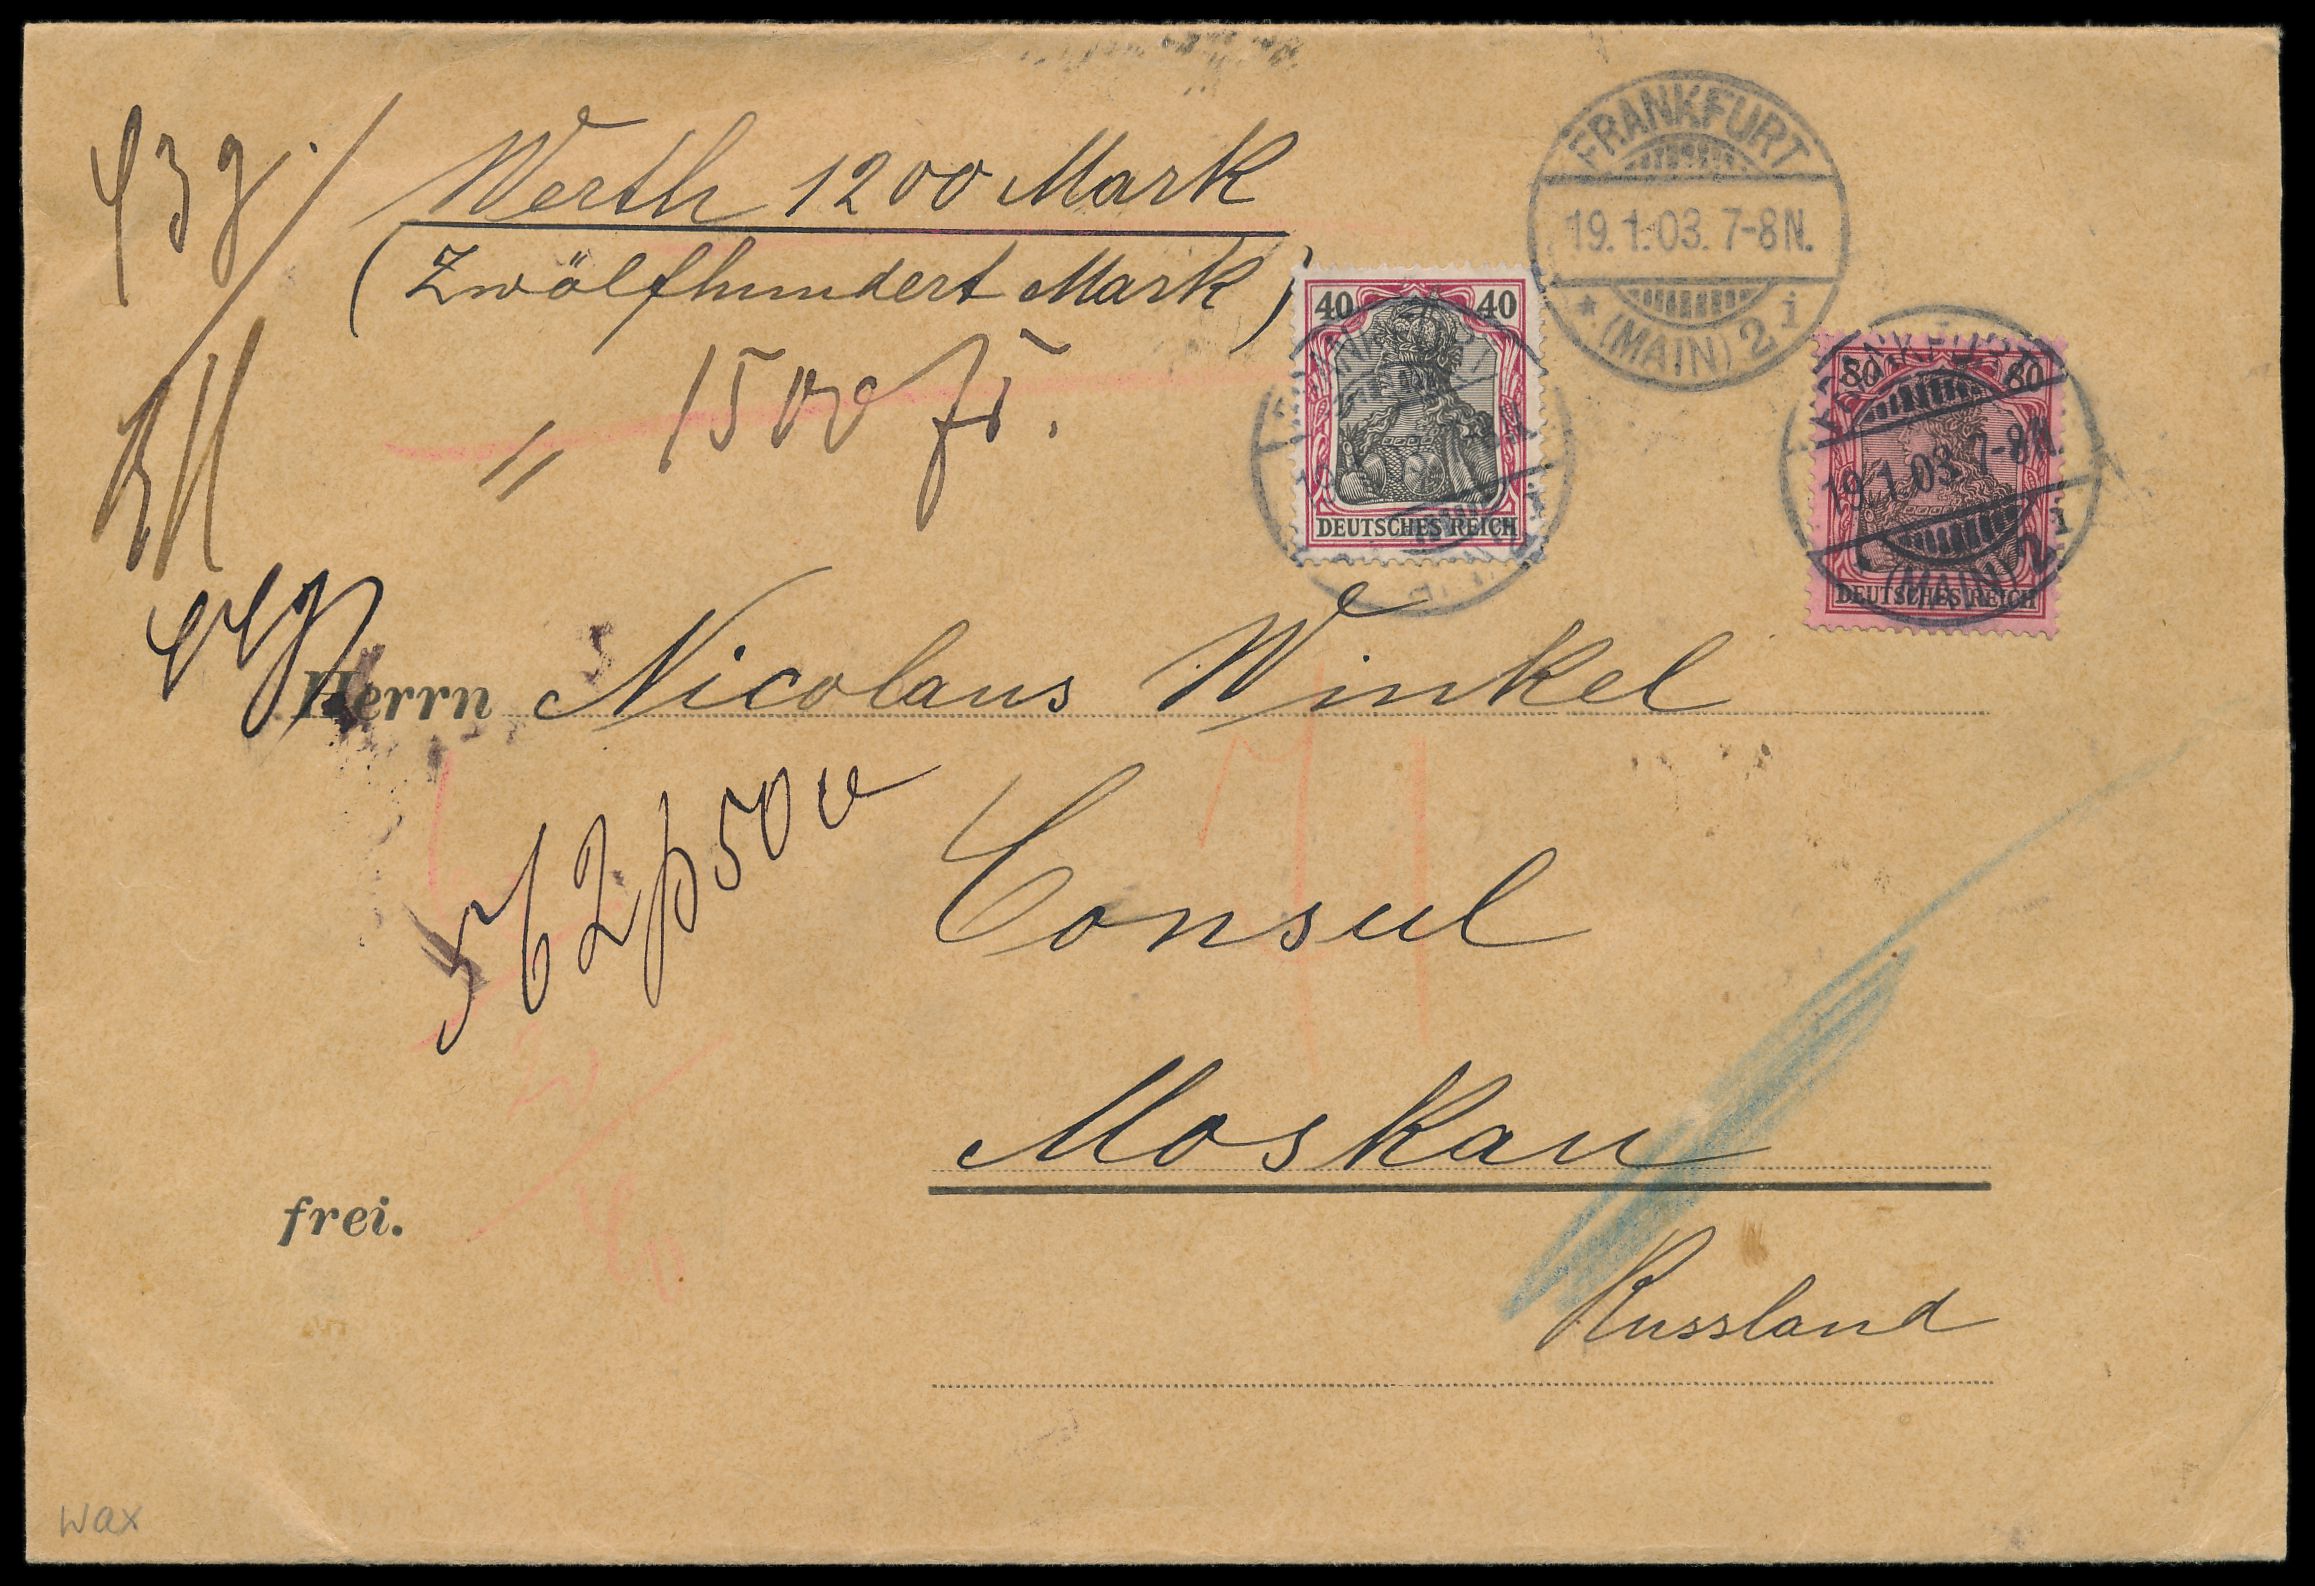 43 g.
Werth 1200 Mark
(Zwölfhundert Mark)
= 1500 fr.
FRANKFURT
19.1.03. 7-8N.
* (MAIN) 2 i
40 40
DEUTSCHES REICH
FRANKFURT
80 80
19.1.03. 7-8N.
(MAIN) 2 i
DEUTSCHES REICH
Herrn Nicolaus Winkel
562 р 50 к
Consul
Moskau
frei.
Russland
wax